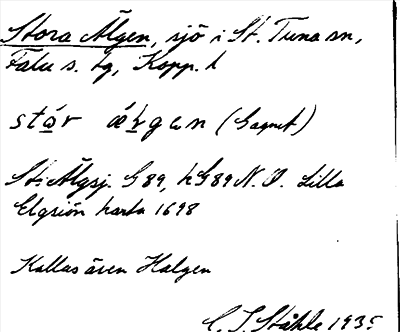 Stora Älgen, sjö i St. Tuna sn,
Falu s. tg, Kopp. l
stór ǽrgan (Gagnef)
St. Älgsj. G 89, h G 89 N. O. Lilla
Elgsiön karta 1698
Kallas även Halgen
C. I. Ståhle 1935